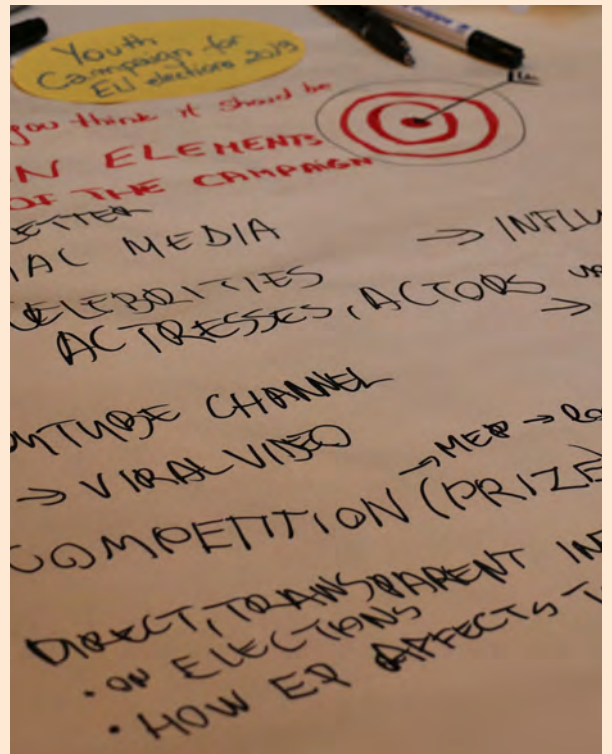 Youth
Campaign for
EU elections 2019
you think it should be
N ELEMENTS
OF THE CAMPAIGN
ETTER
IAL MEDIA → INFLU
CELEBRITIES
ACTRESSES, ACTORS
→
OUTUBE CHANNEL
→ VIRAL VIDEO
→ MEP →
COMPETITION (PRIZE
DIRECT, TRANSPARENT IN
• ON ELECTIONS
• HOW EP AFFECTS T